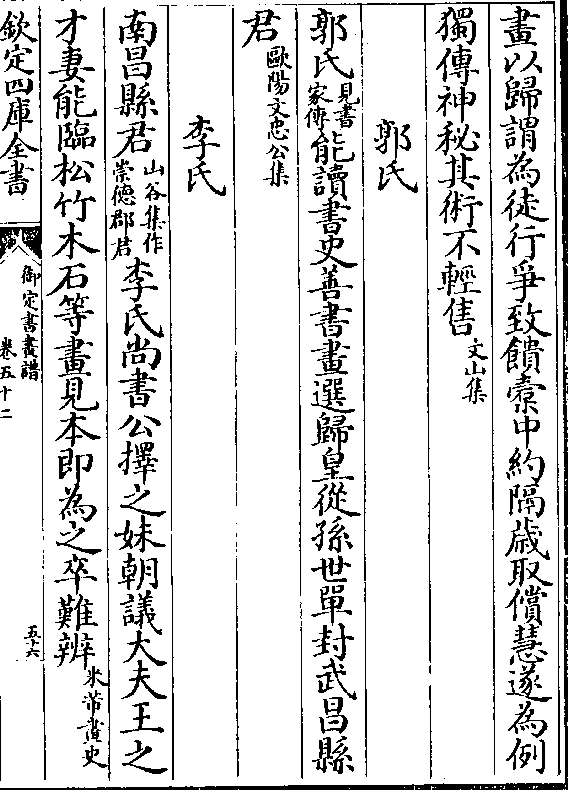 畫以歸謂為徒行爭致饋橐中約隔歲取償慧遂為例
獨傳神秘其術不輕售文山集
郭氏
郭氏見書家傳能讀書史善書畫選歸皇從孫世單封武昌縣
君歐陽文忠公集
李氏
南昌縣君山谷集作崇德郡君李氏尚書公擇之妹朝議大夫王之
才妻能臨松竹木石等畫見本即為之卒難辨米芾畫史
欽定四庫全書
御定書畫譜
卷五十二
五十六